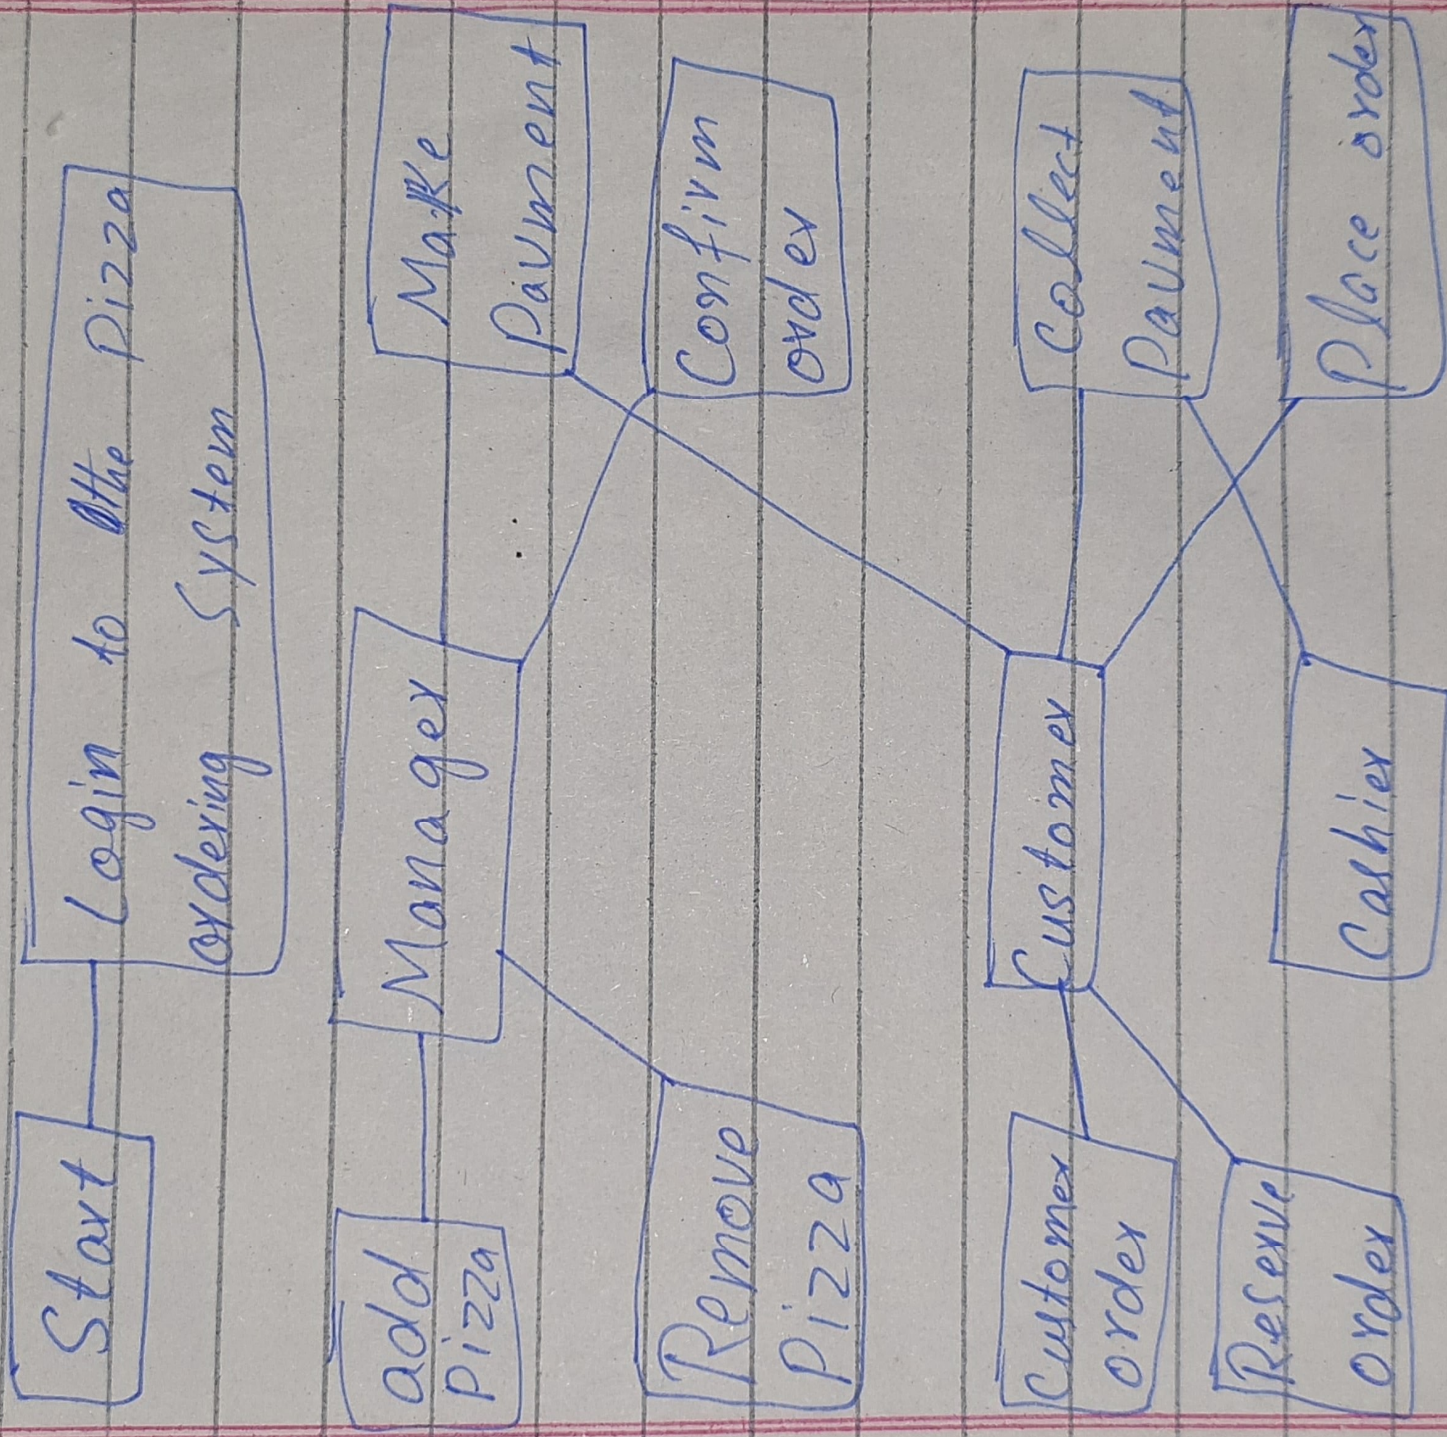 Start
Login to the Pizza
ordering System
add
Pizza
Manager
Make
Payment
Remove
Pizza
Confirm
order
Customer
order
Customer
Collect
Payment
Reserve
order
Cashier
Place order